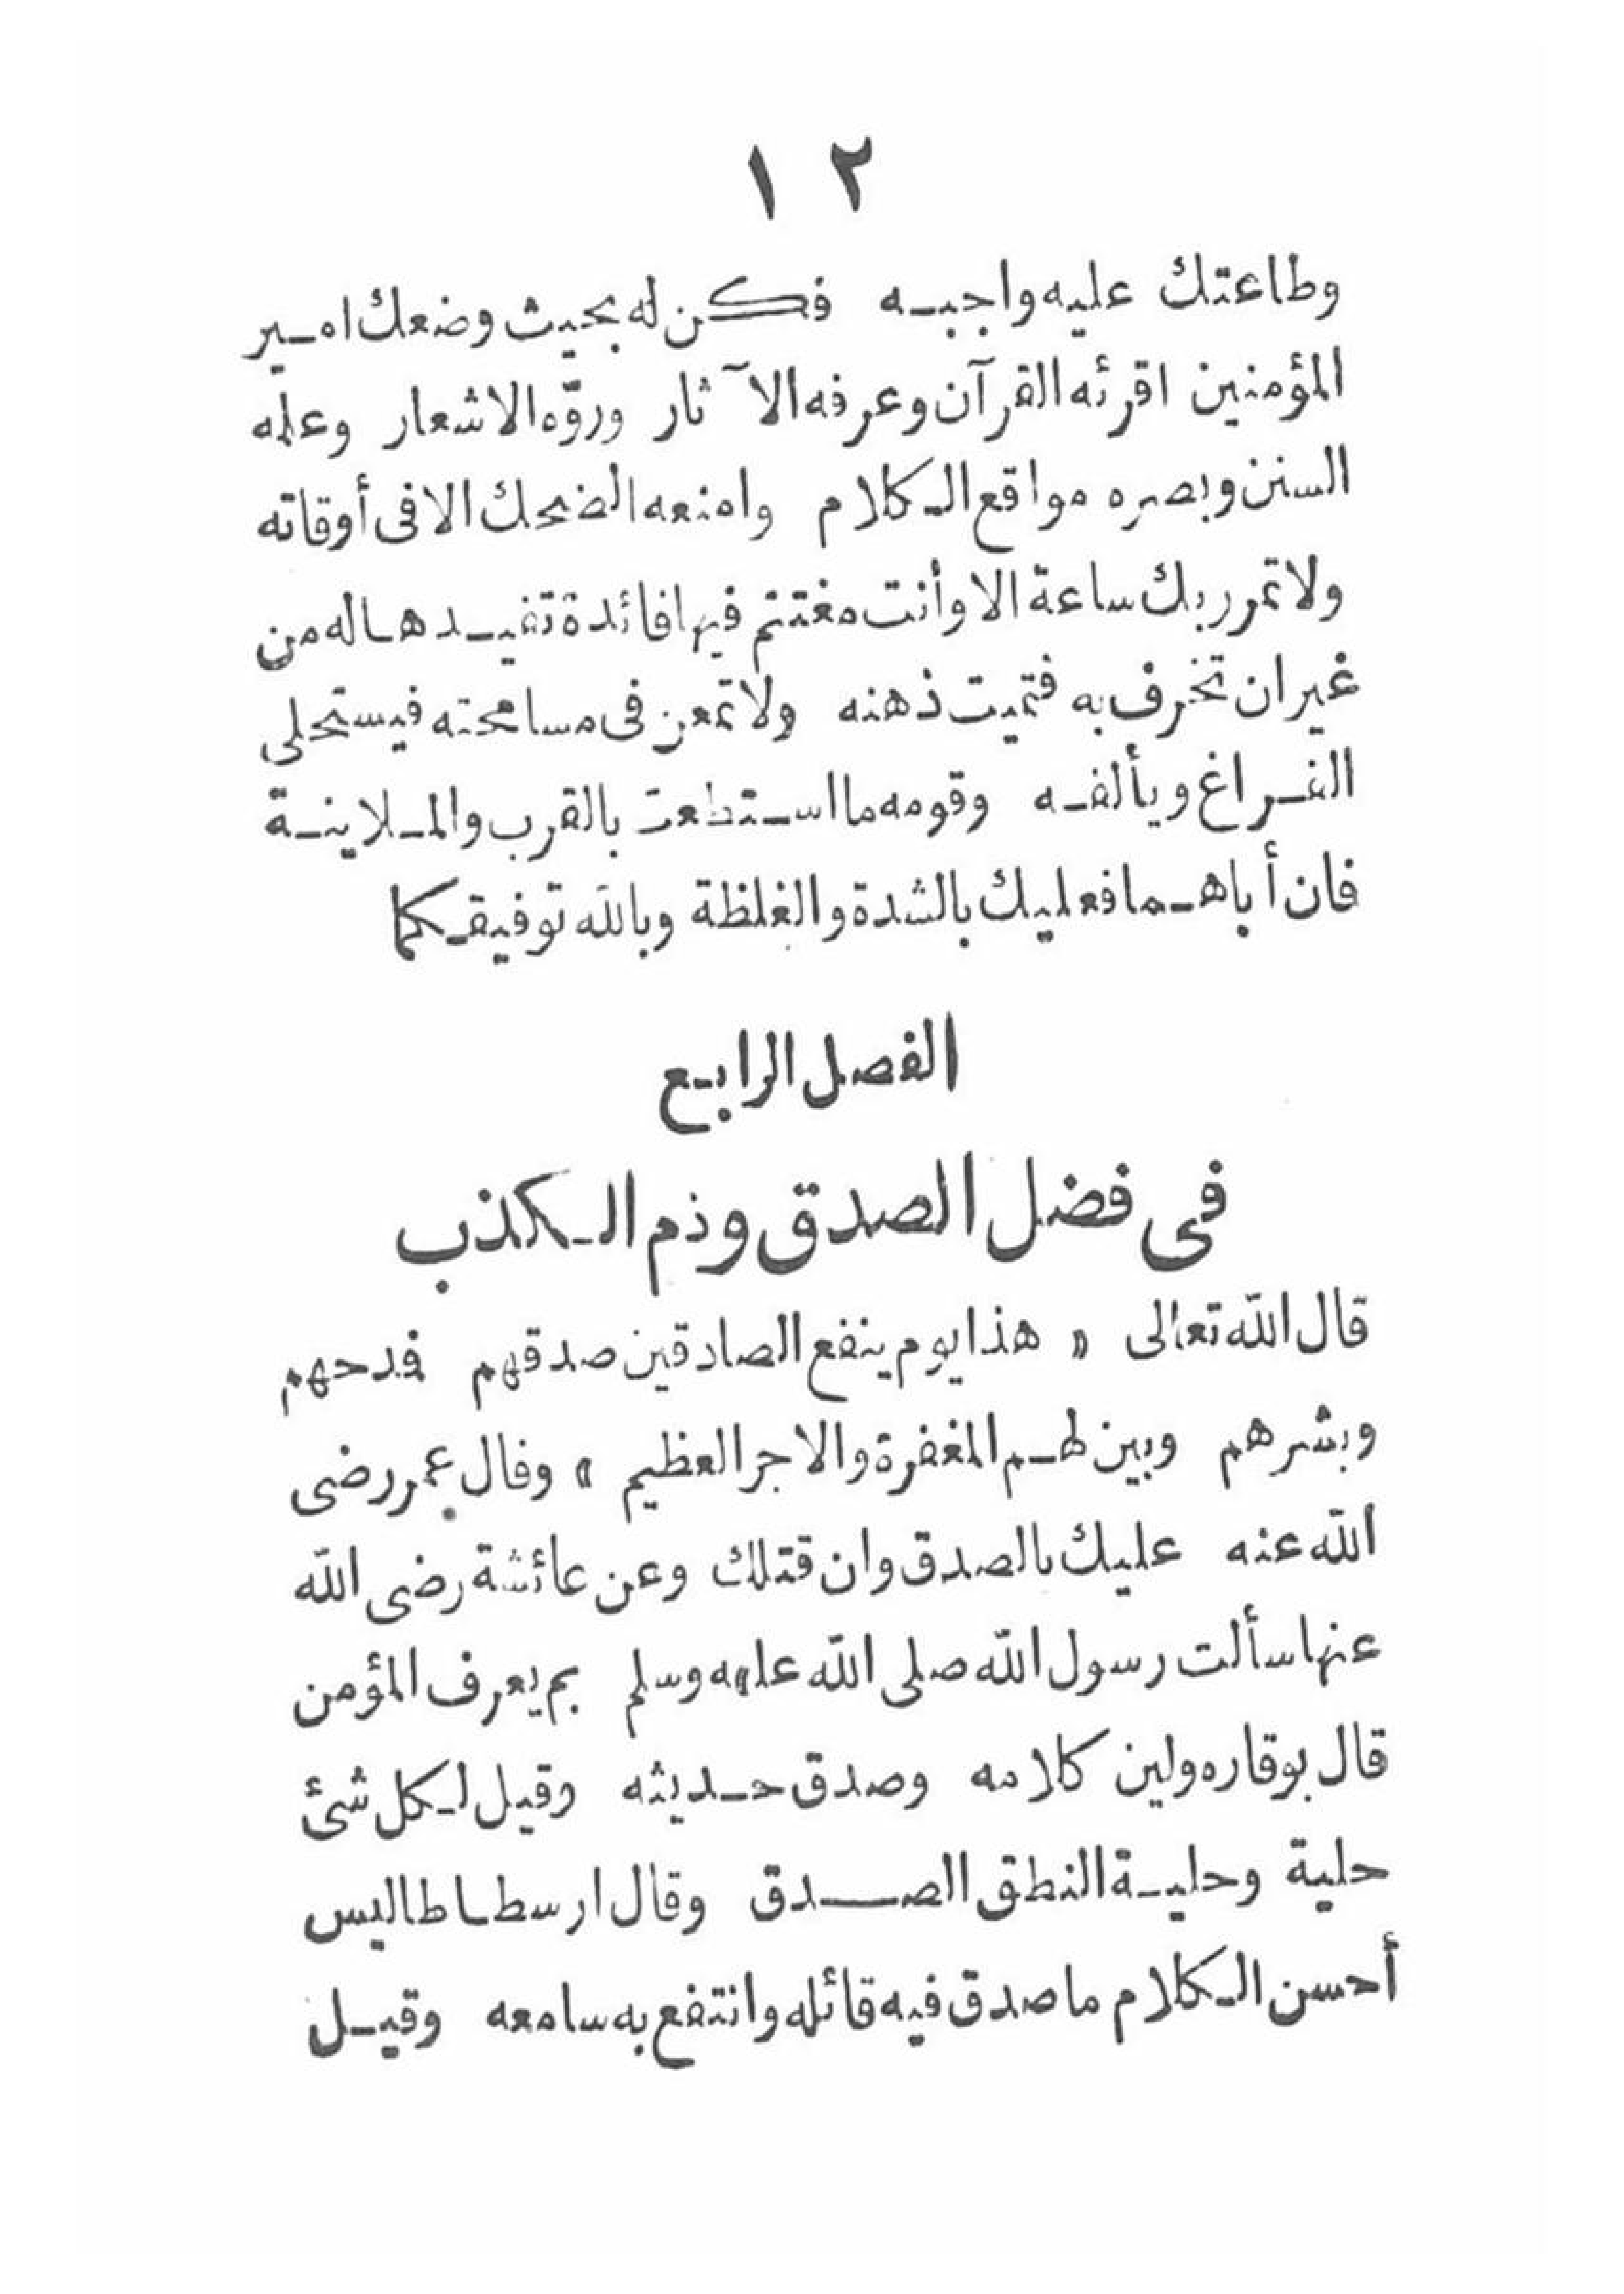 ١٢
وطاعتك عليه واجبه فكن له بحيث وضعك امير
المؤمنين اقرئه القرآن وعرفه الآثار وروّه الاشعار وعلمه
السنن وبصره مواقع الكلام وامنعه الضحك الا فى أوقاته
ولا تمرر بك ساعة الا وأنت مغتنم فيها فائدة تفيدها له من
غير ان تخرف به فتميت ذهنه ولا تمعن فى مسامحته فيستحلى
الفراغ ويألفه وقومه ما استطعت بالقرب والملاينة
فان أباهما فعليك بالشدة والغلظة وبالله توفيقكما
الفصل الرابع
فى فضل الصدق وذم الكذب
قال الله تعالى « هذا يوم ينفع الصادقين صدقهم فمدحهم
وبشرهم وبين لهم المغفرة والاجر العظيم » وقال عمر رضى
الله عنه عليك بالصدق وان قتلك وعن عائشة رضى الله
عنها سألت رسول الله صلى الله عليه وسلم بم يعرف المؤمن
قال بوقاره ولين كلامه وصدق حديثه وقيل لكل شئ
حلية وحلية النطق الصدق وقال ارسطاطاليس
أحسن الكلام ما صدق فيه قائله وانتفع به سامعه وقيل